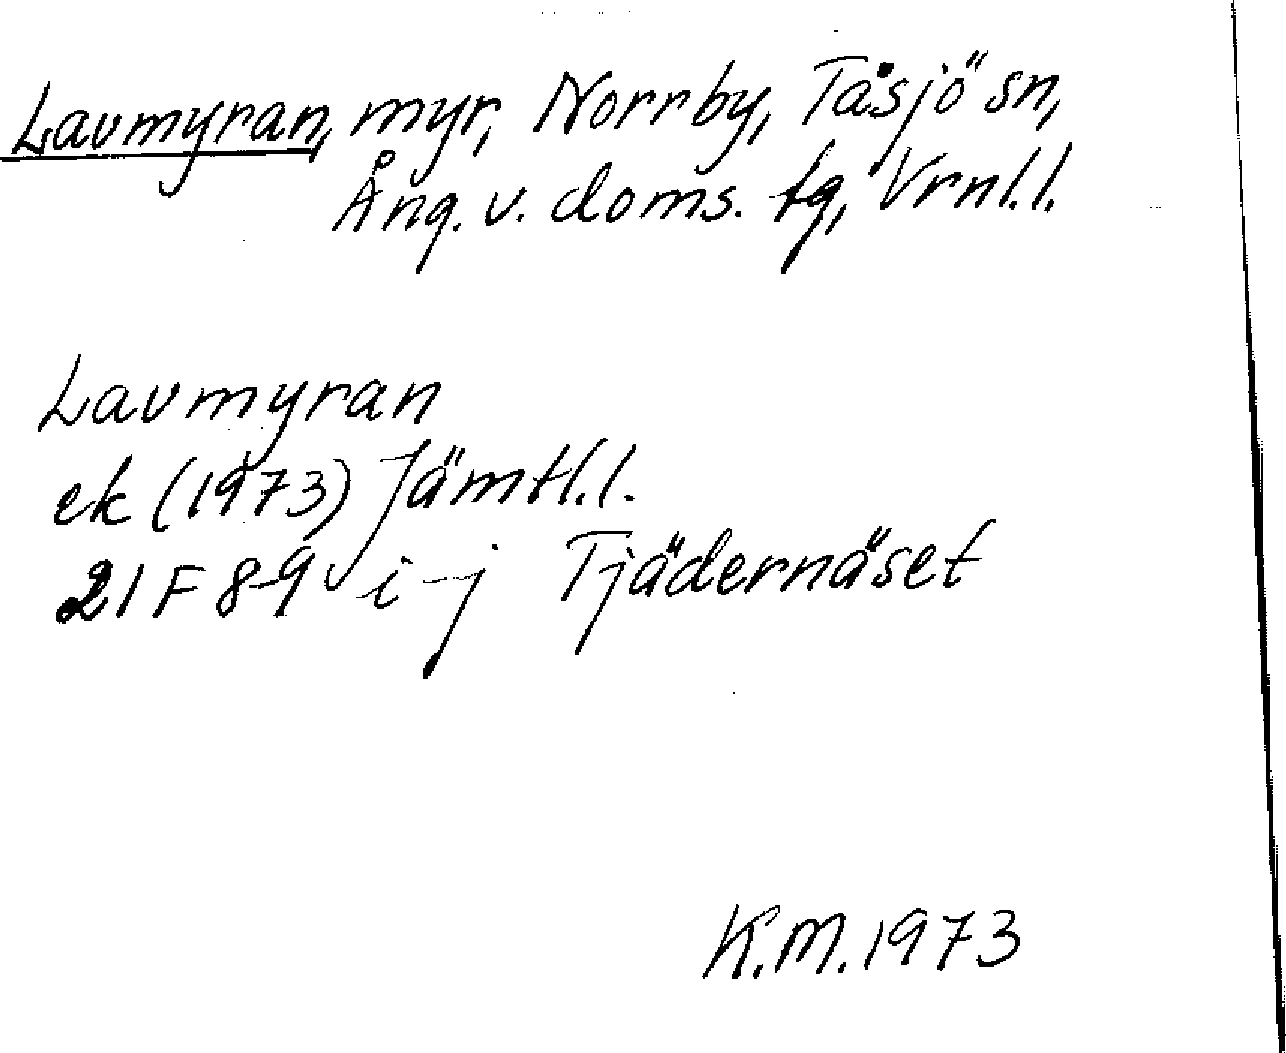 Lavmyran, myr, Norrby, Tåsjö sn,
Ång. v. doms. tg, Vrnl.l.
Lavmyran
ek (1973) Jämtl.l.
21 F 8-9 i-j Tjädernäset
K.M. 1973